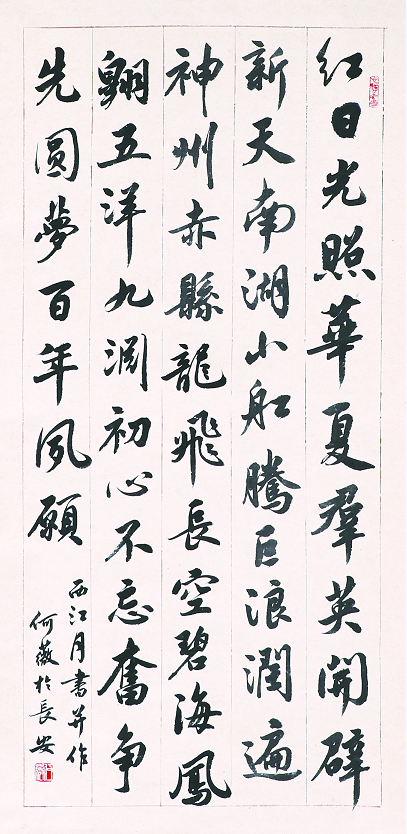 红日光照華夏羣英開辟
新天南湖小船騰巨浪潤遍
神州赤縣龍飛長空碧海鳳
翱五洋九渊初心不忘奮争
先圆夢百年夙願
西江月書并作
何薇於長安